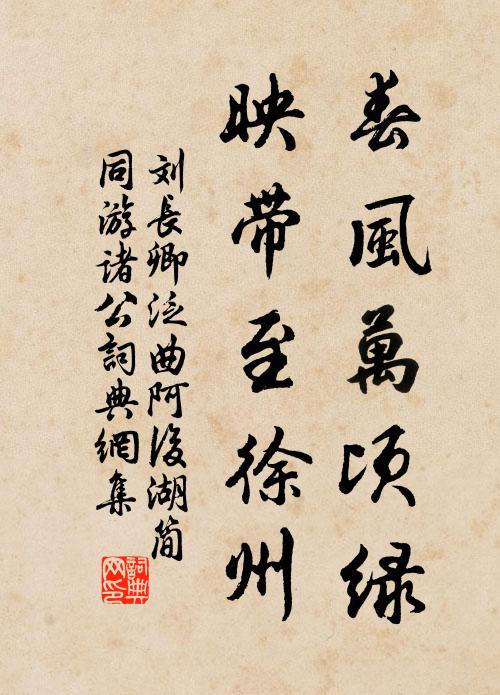 春風萬頃绿
映带至徐州
刘長卿泛曲阿後湖简
同游诸公詞典網集
詞典网印